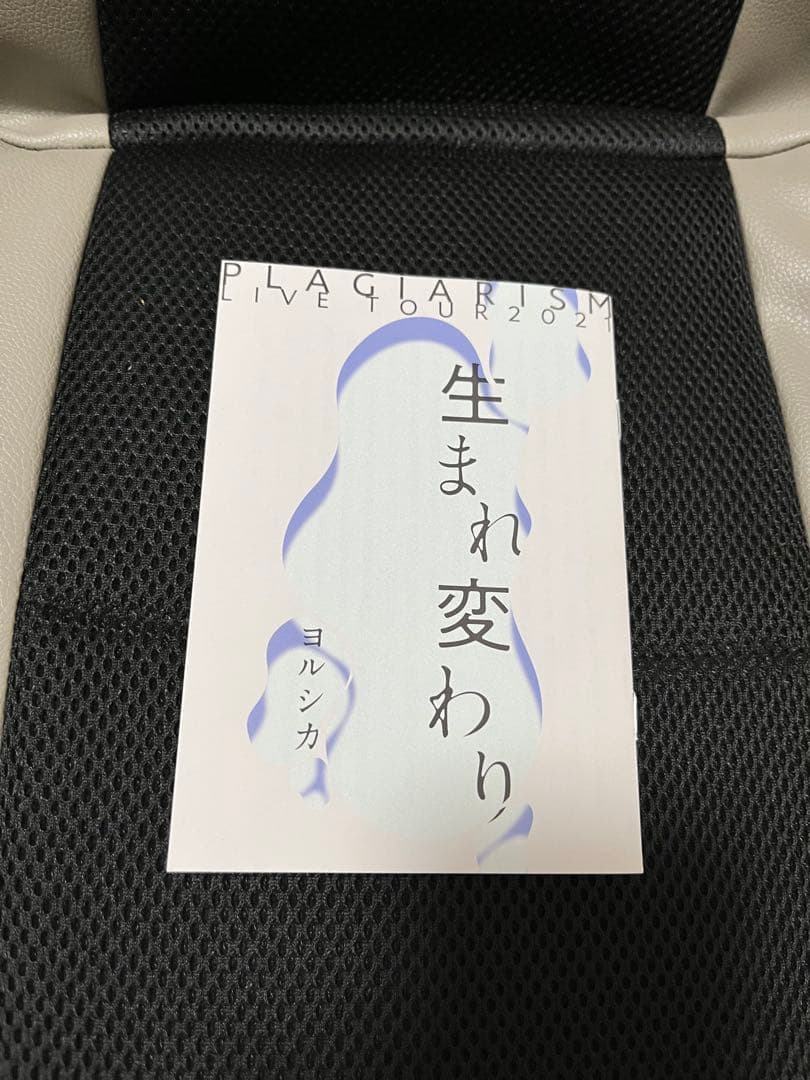 PLAGIARISM
LIVE TOUR2021
生まれ変わり
ヨルシカ